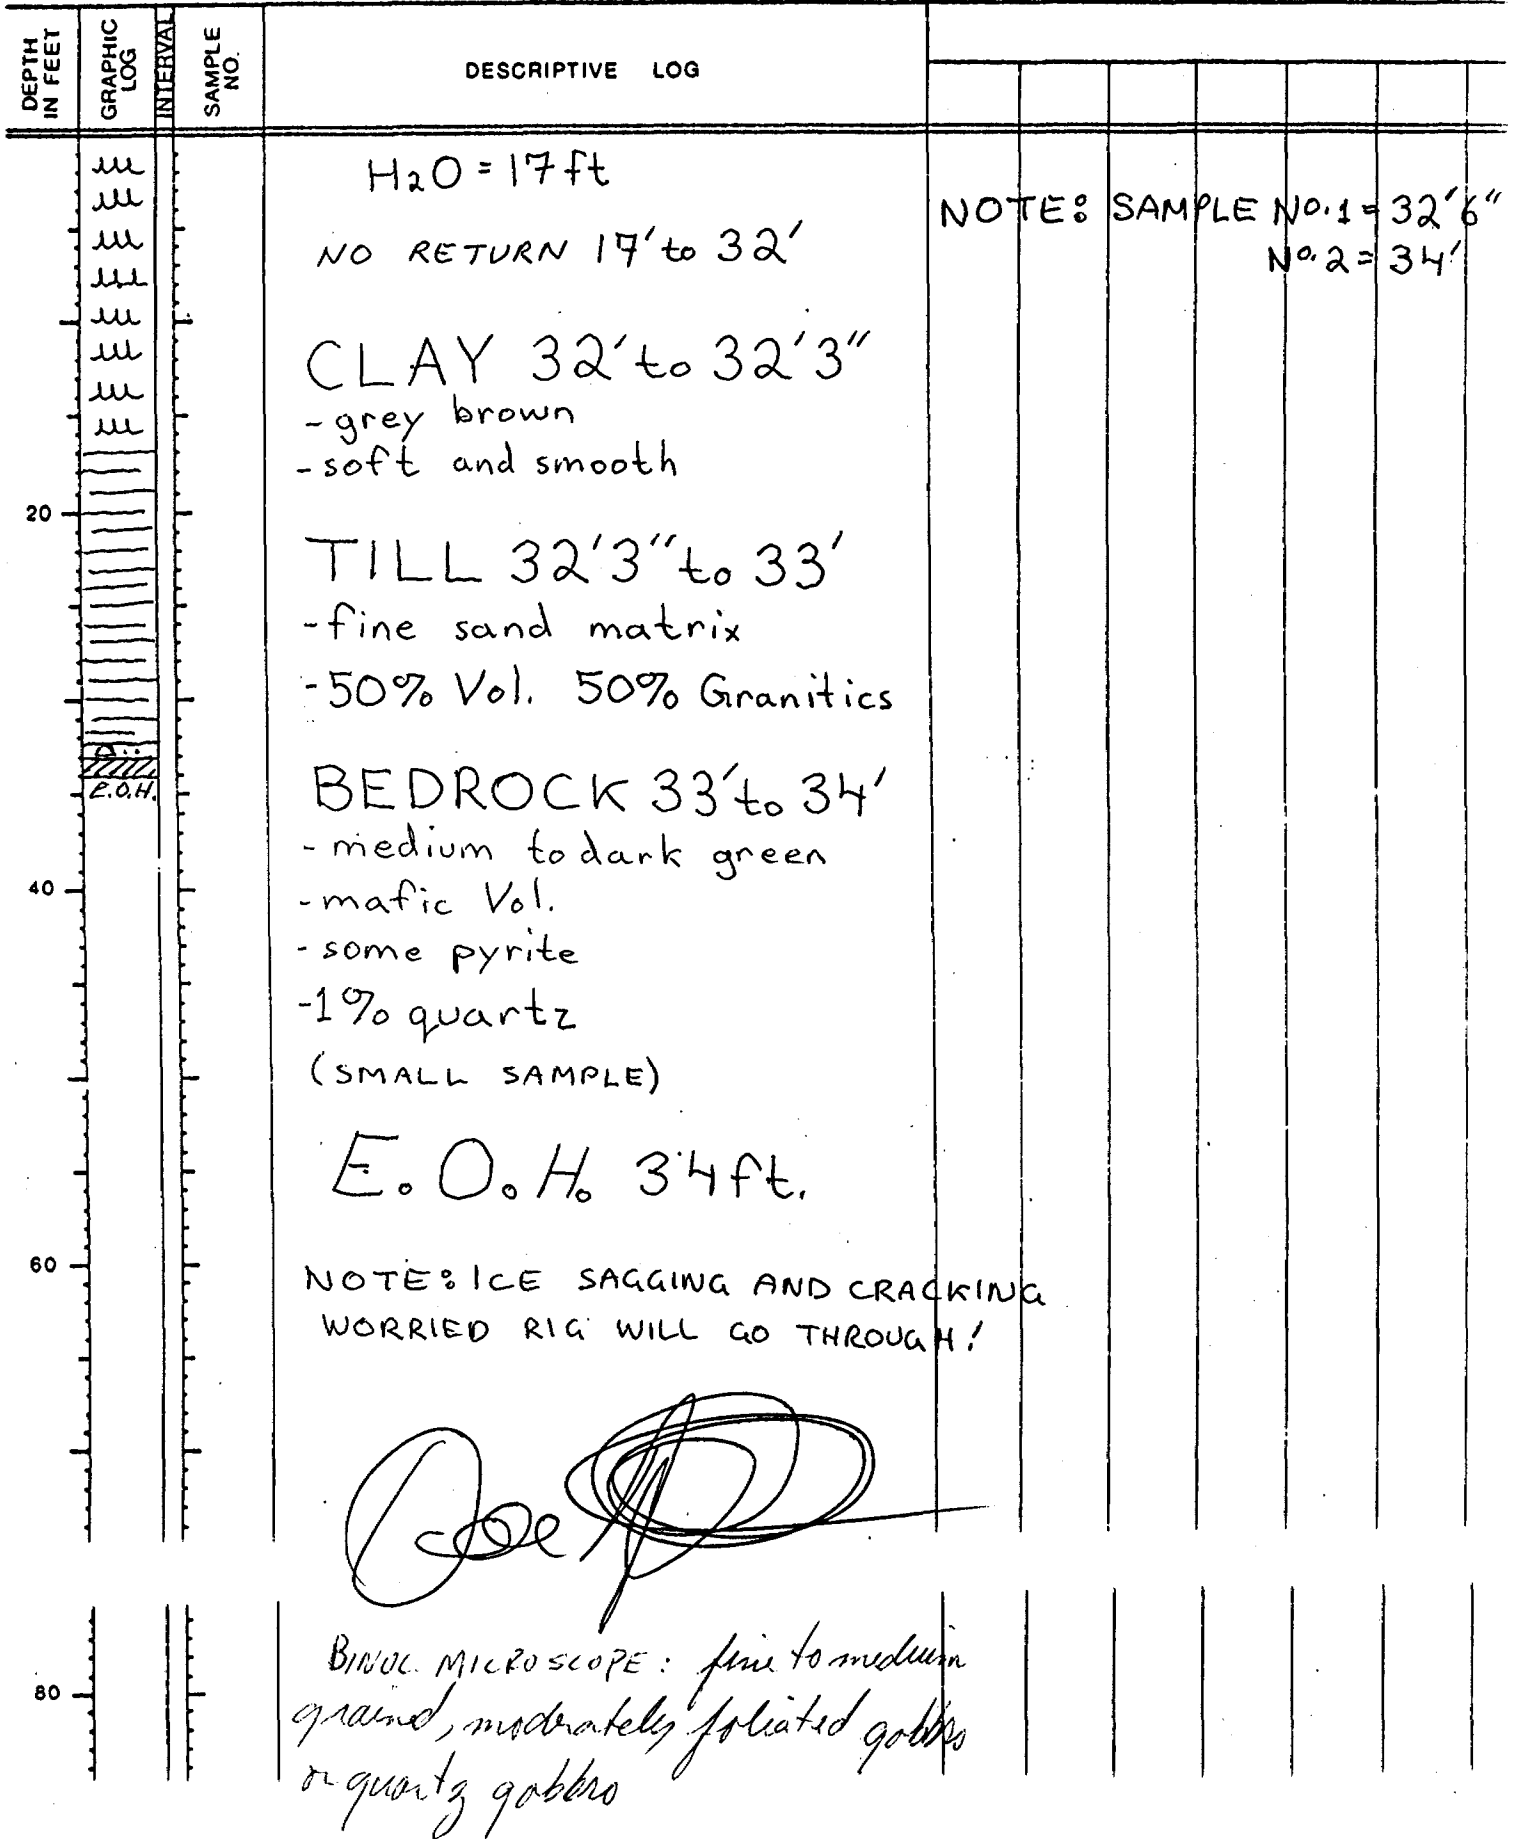 DEPTH IN FEET
GRAPHIC LOG
INTERVAL
SAMPLE NO.
DESCRIPTIVE LOG
H2O = 17 ft
NO RETURN 17' to 32'
NOTE: SAMPLE No.1 = 32'6"
No.2 = 34'
CLAY 32' to 32'3"
- grey brown
- soft and smooth
20
TILL 32'3" to 33'
- fine sand matrix
- 50% Vol. 50% Granitics
E.O.H.
BEDROCK 33' to 34'
- medium to dark green
40
- mafic Vol.
- some pyrite
- 1% quartz
(SMALL SAMPLE)
E.O.H. 34 ft.
60
NOTE: ICE SAGGING AND CRACKING
WORRIED RIG WILL GO THROUGH!
BINOC. MICROSCOPE: fine to medium
80
grained, moderately foliated gabbro
or quartz gabbro